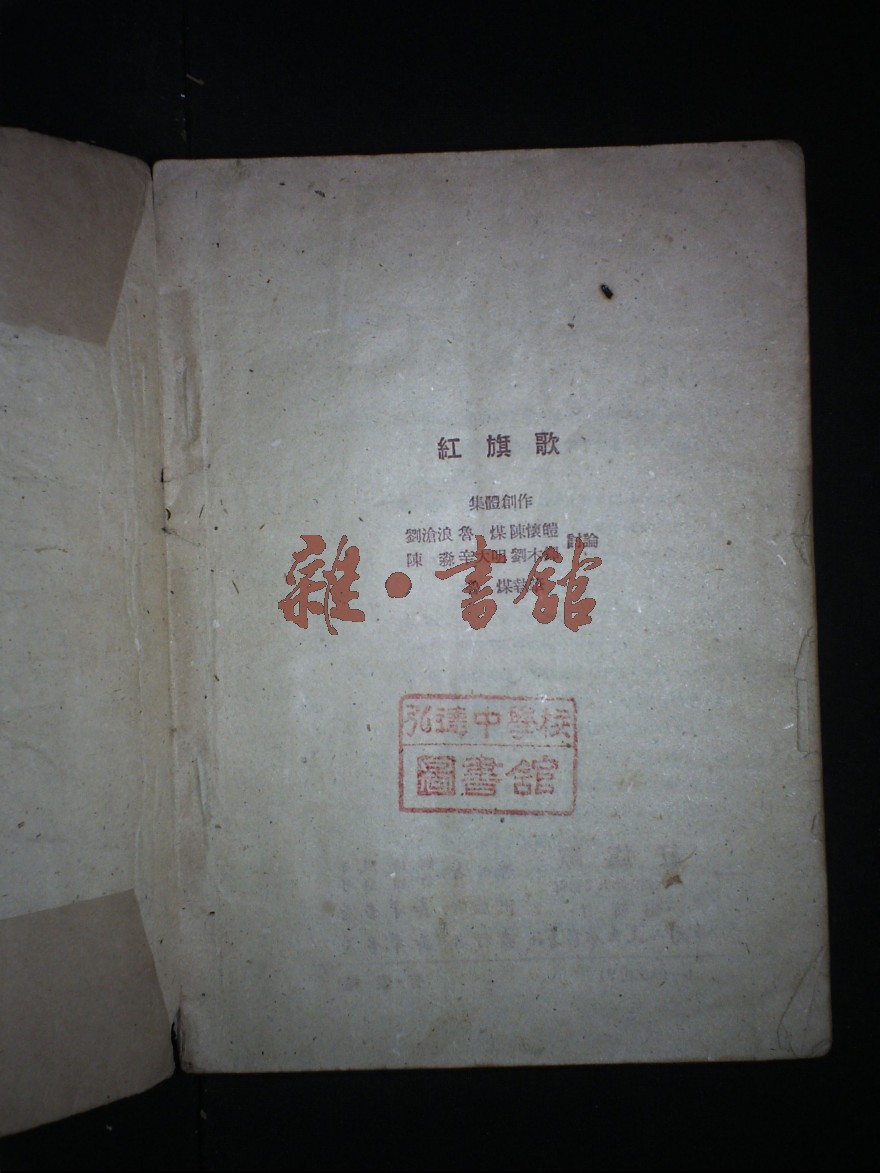 紅旗歌
集體創作
劉滄浪 魯 煤 陳懷皚
陳 淼 辛大明 劉木鐸 討論
魯 煤 執筆
雜·書館
弘達中學校
圖書館